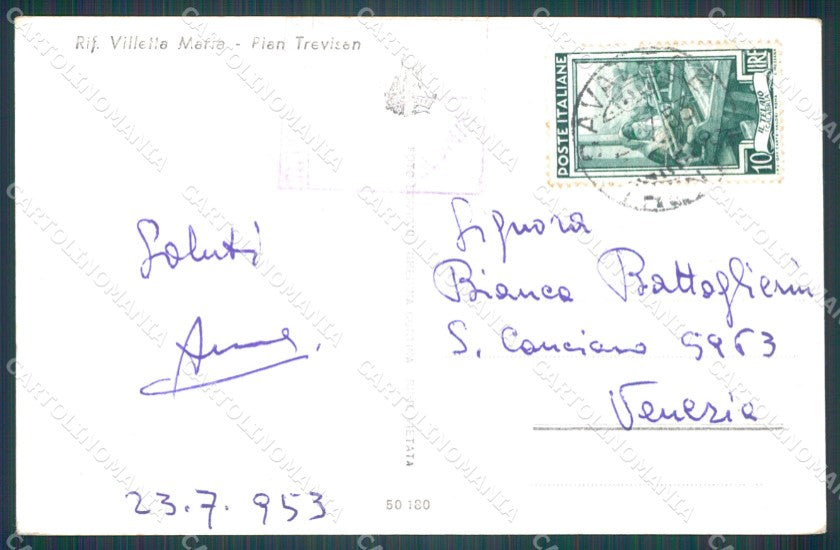 Rif. Villetta Maria - Pian Trevisan
POSTE ITALIANE
LIRE
10
IL TELAIO
Saluti
23.7.953
Signora
Bianca Battaglierin
S. Canciano 5963
Venezia
50180
CARTOLINOMANIA